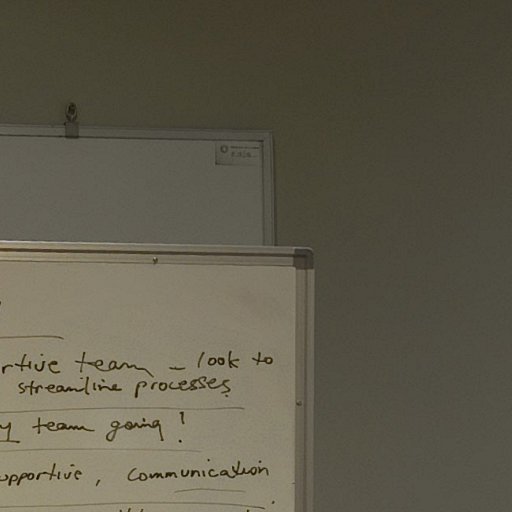 rtive team - look to
streamline processes
y team going!
upportive, communication